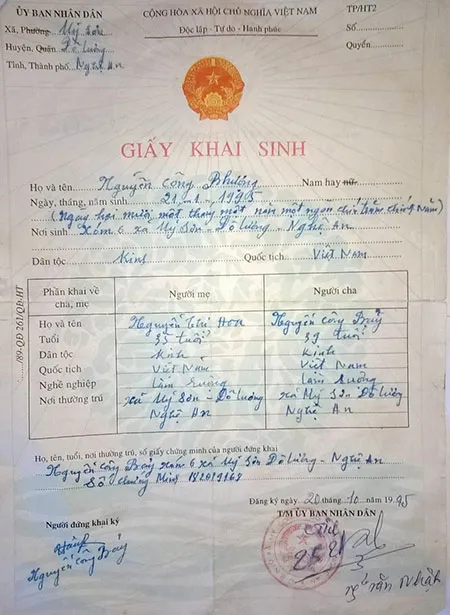 ỦY BAN NHÂN DÂN
Xã, Phường Mỹ Sơn
Huyện, Quận Đô Lương
Tỉnh, Thành phố Nghệ An
CỘNG HÒA XÃ HỘI CHỦ NGHĨA VIỆT NAM
Độc lập - Tự do - Hạnh phúc
TP/HT2
Số
Quyển
GIẤY KHAI SINH
Họ và tên Nguyễn Công Phượng Nam hay nữ
Ngày, tháng, năm sinh 21 - 1 - 1995
(Ngày hai mươi một tháng một năm một ngàn chín trăm chín năm)
Nơi sinh Xóm 6 xã Mỹ Sơn - Đô Lương - Nghệ An
Dân tộc Kinh Quốc tịch Việt Nam
Phần khai về cha, mẹ Người mẹ Người cha
Họ và tên Nguyễn Thị Hoa Nguyễn Công Bảy
Tuổi 35 tuổi 37 tuổi
Dân tộc Kinh Kinh
Quốc tịch Việt Nam Việt Nam
Nghề nghiệp Làm ruộng Làm ruộng
Nơi thường trú xã Mỹ Sơn - Đô Lương xã Mỹ Sơn Đô Lương
Nghệ An Nghệ An
Họ, tên, tuổi, nơi thường trú, số giấy chứng minh của người đứng khai
Nguyễn Công Bảy xóm 6 xã Mỹ Sơn Đô Lương - Nghệ An
Số chứng Minh
Đăng ký ngày 20 tháng 10 năm 1995
Người đứng khai ký
T/M ỦY BAN NHÂN DÂN
Nguyễn Công Bảy
/89-QĐ 261/QĐ/HT